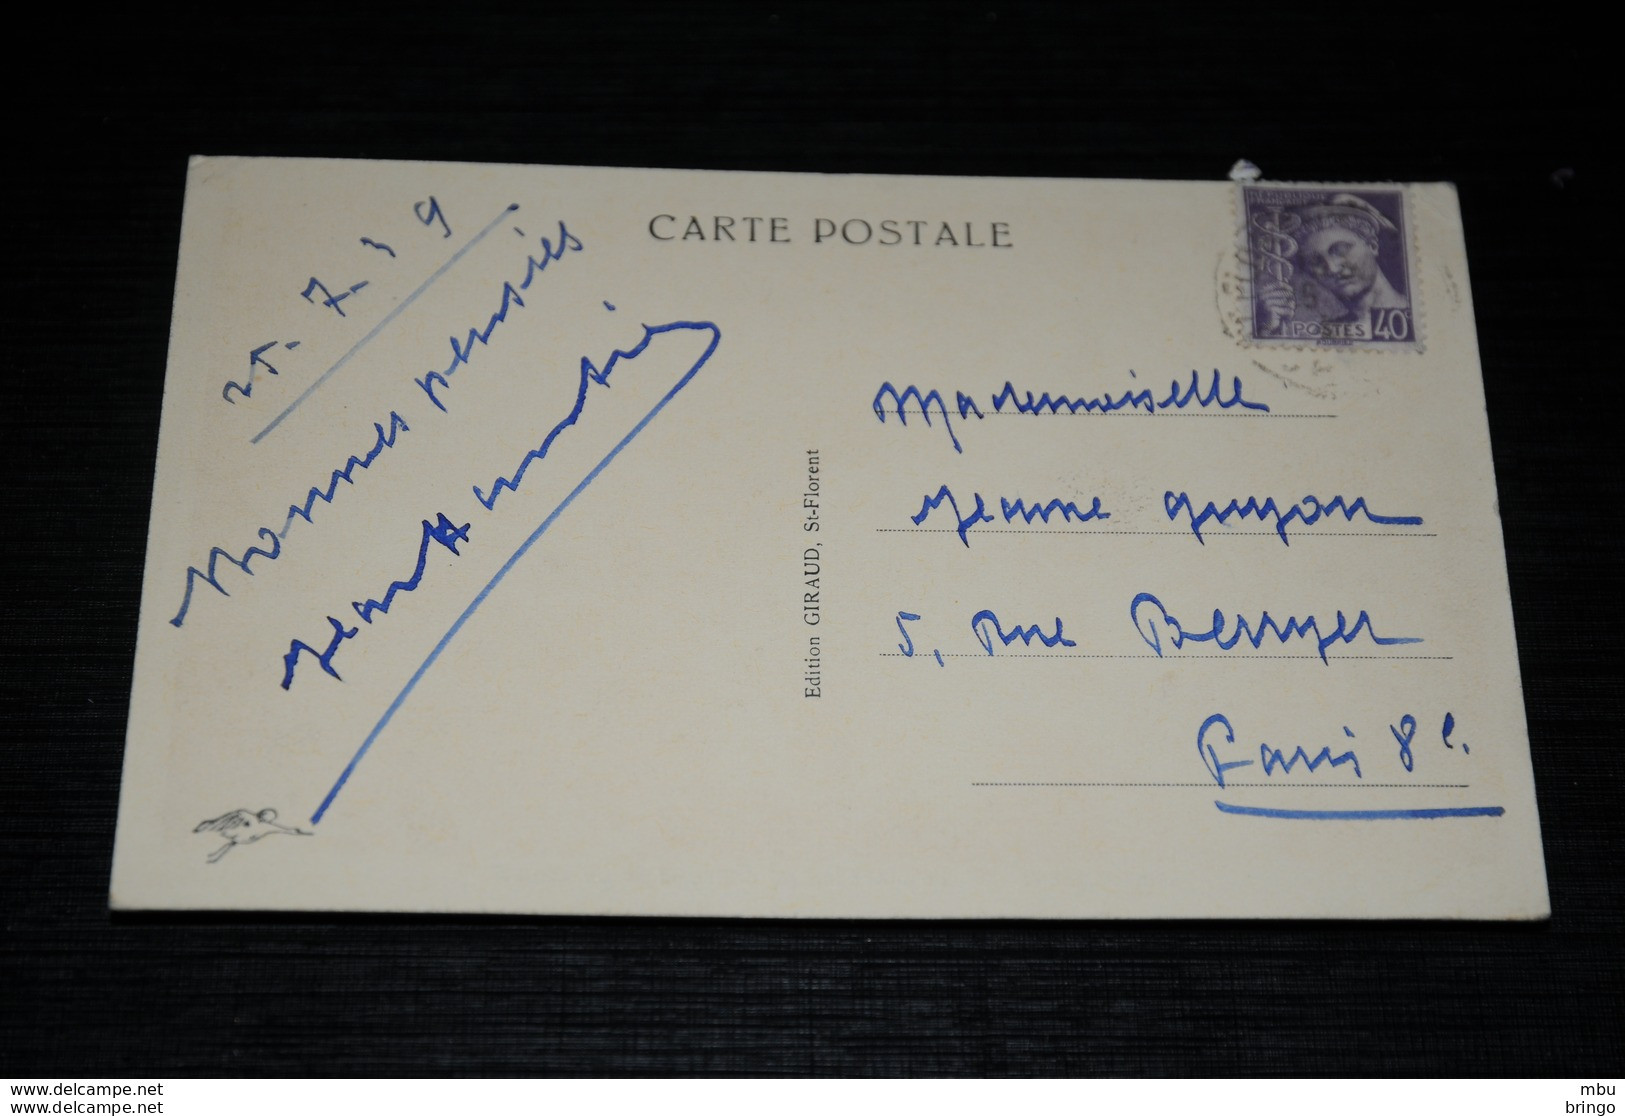 25.7.39
Bonnes pensées
Jean
CARTE POSTALE
REPUBLIQUE
POSTES 40c
Edition GIRAUD, St-Florent
Mademoiselle
Jeanne Guyon
5, Rue Berryer
Paris 8e.
www.delcampe.net
www.delcampe.net
mbu
bringo